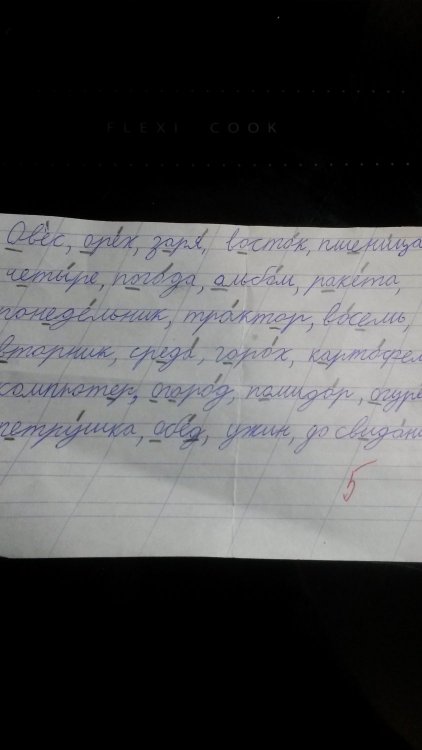 FLEXI COOK
Овёс, орех, заря, восток, пшеница
четыре, погода, альбом, ракета,
понедельник, трактор, восемь,
вторник, среда, горох, картофел
компьютер, огород, помидор, огуре
петрушка, обед, ужин, до свидани
5